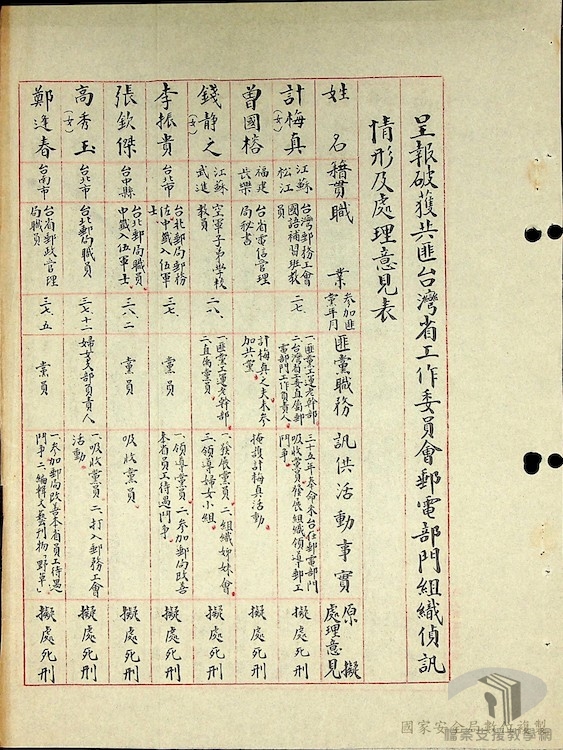 呈報破獲共匪台灣省工作委員會郵電部門組織偵訊
情形及處理意見表
姓名
籍貫
職業
參加匪黨年月
匪黨職務
訊供活動事實
原擬處理意見
計梅真(女)
江蘇松江
台灣郵務工會國語補習班教員
二七、
一、匪黨工運老幹部 二、台灣省工委直屬郵電部門工作負責人
三十五年奉命來台任郵電部門吸收黨員發展組織領導郵工鬥爭。
擬處死刑
曾國榕
福建長樂
台灣省電信管理局秘書
計梅真之夫未參加共黨。
掩護計梅真活動
擬處死刑
錢静之(女)
江蘇武進
空軍子弟學校教員
二八、
一、匪黨工運老幹部 二、直屬黨員
一、發展黨員 二、組織姊妹會 三、領導婦女小組。
擬處死刑
李振貴
台北市
台北郵局郵務佐中籤入伍軍士、
三七、
黨員
一、領導黨員 二、參加郵局改善本省員工待遇鬥爭
擬處死刑
張欽傑
台中縣
台北郵局職員、中籤入伍軍士
三八、二
黨員
吸收黨員。
擬處死刑
高秀玉(女)
台北市
台北郵局職員
三七、十一
婦女支部負責人
一、吸收黨員 二、打入郵務工會活動。
擬處死刑
鄭逢春
台南市
台省郵政管理局職員
三七、五
黨員
一、參加郵局改善本省員工待遇鬥爭 二、編輯文藝刊物「野草」。
擬處死刑
國家安全局數位複製
檔案支援教學網